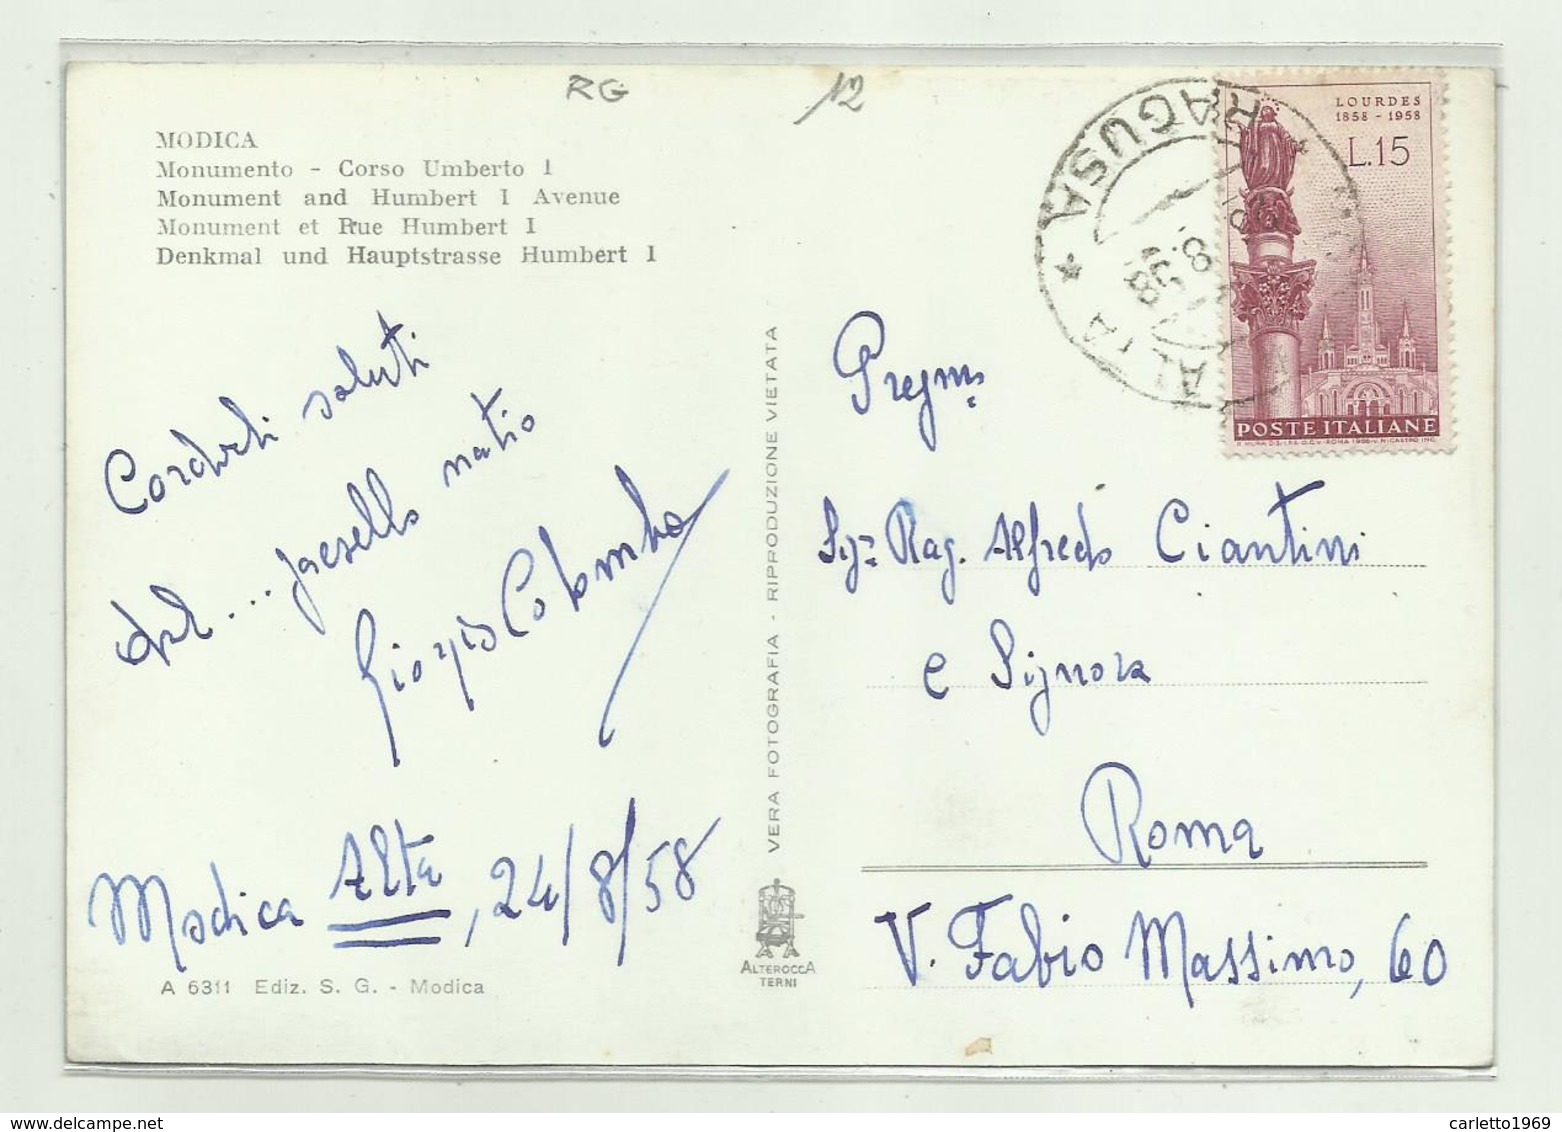 RG
12
MODICA
Monumento - Corso Umberto I
Monument and Humbert I Avenue
Monument et Rue Humbert I
Denkmal und Hauptstrasse Humbert I
Cordiali saluti
dal ... paesello natio
Giorgio Colombo
Modica Alta, 24/8/58
A 6311 Ediz. S. G. - Modica
VERA FOTOGRAFIA - RIPRODUZIONE VIETATA
ALTEROCCA
TERNI
RAGUSA
LOURDES
1858 - 1958
L.15
POSTE ITALIANE
Pregmi
Sig.ri Rag. Alfredo Ciantini
e Signora
Roma
V. Fabio Massimo, 60
carletto1969